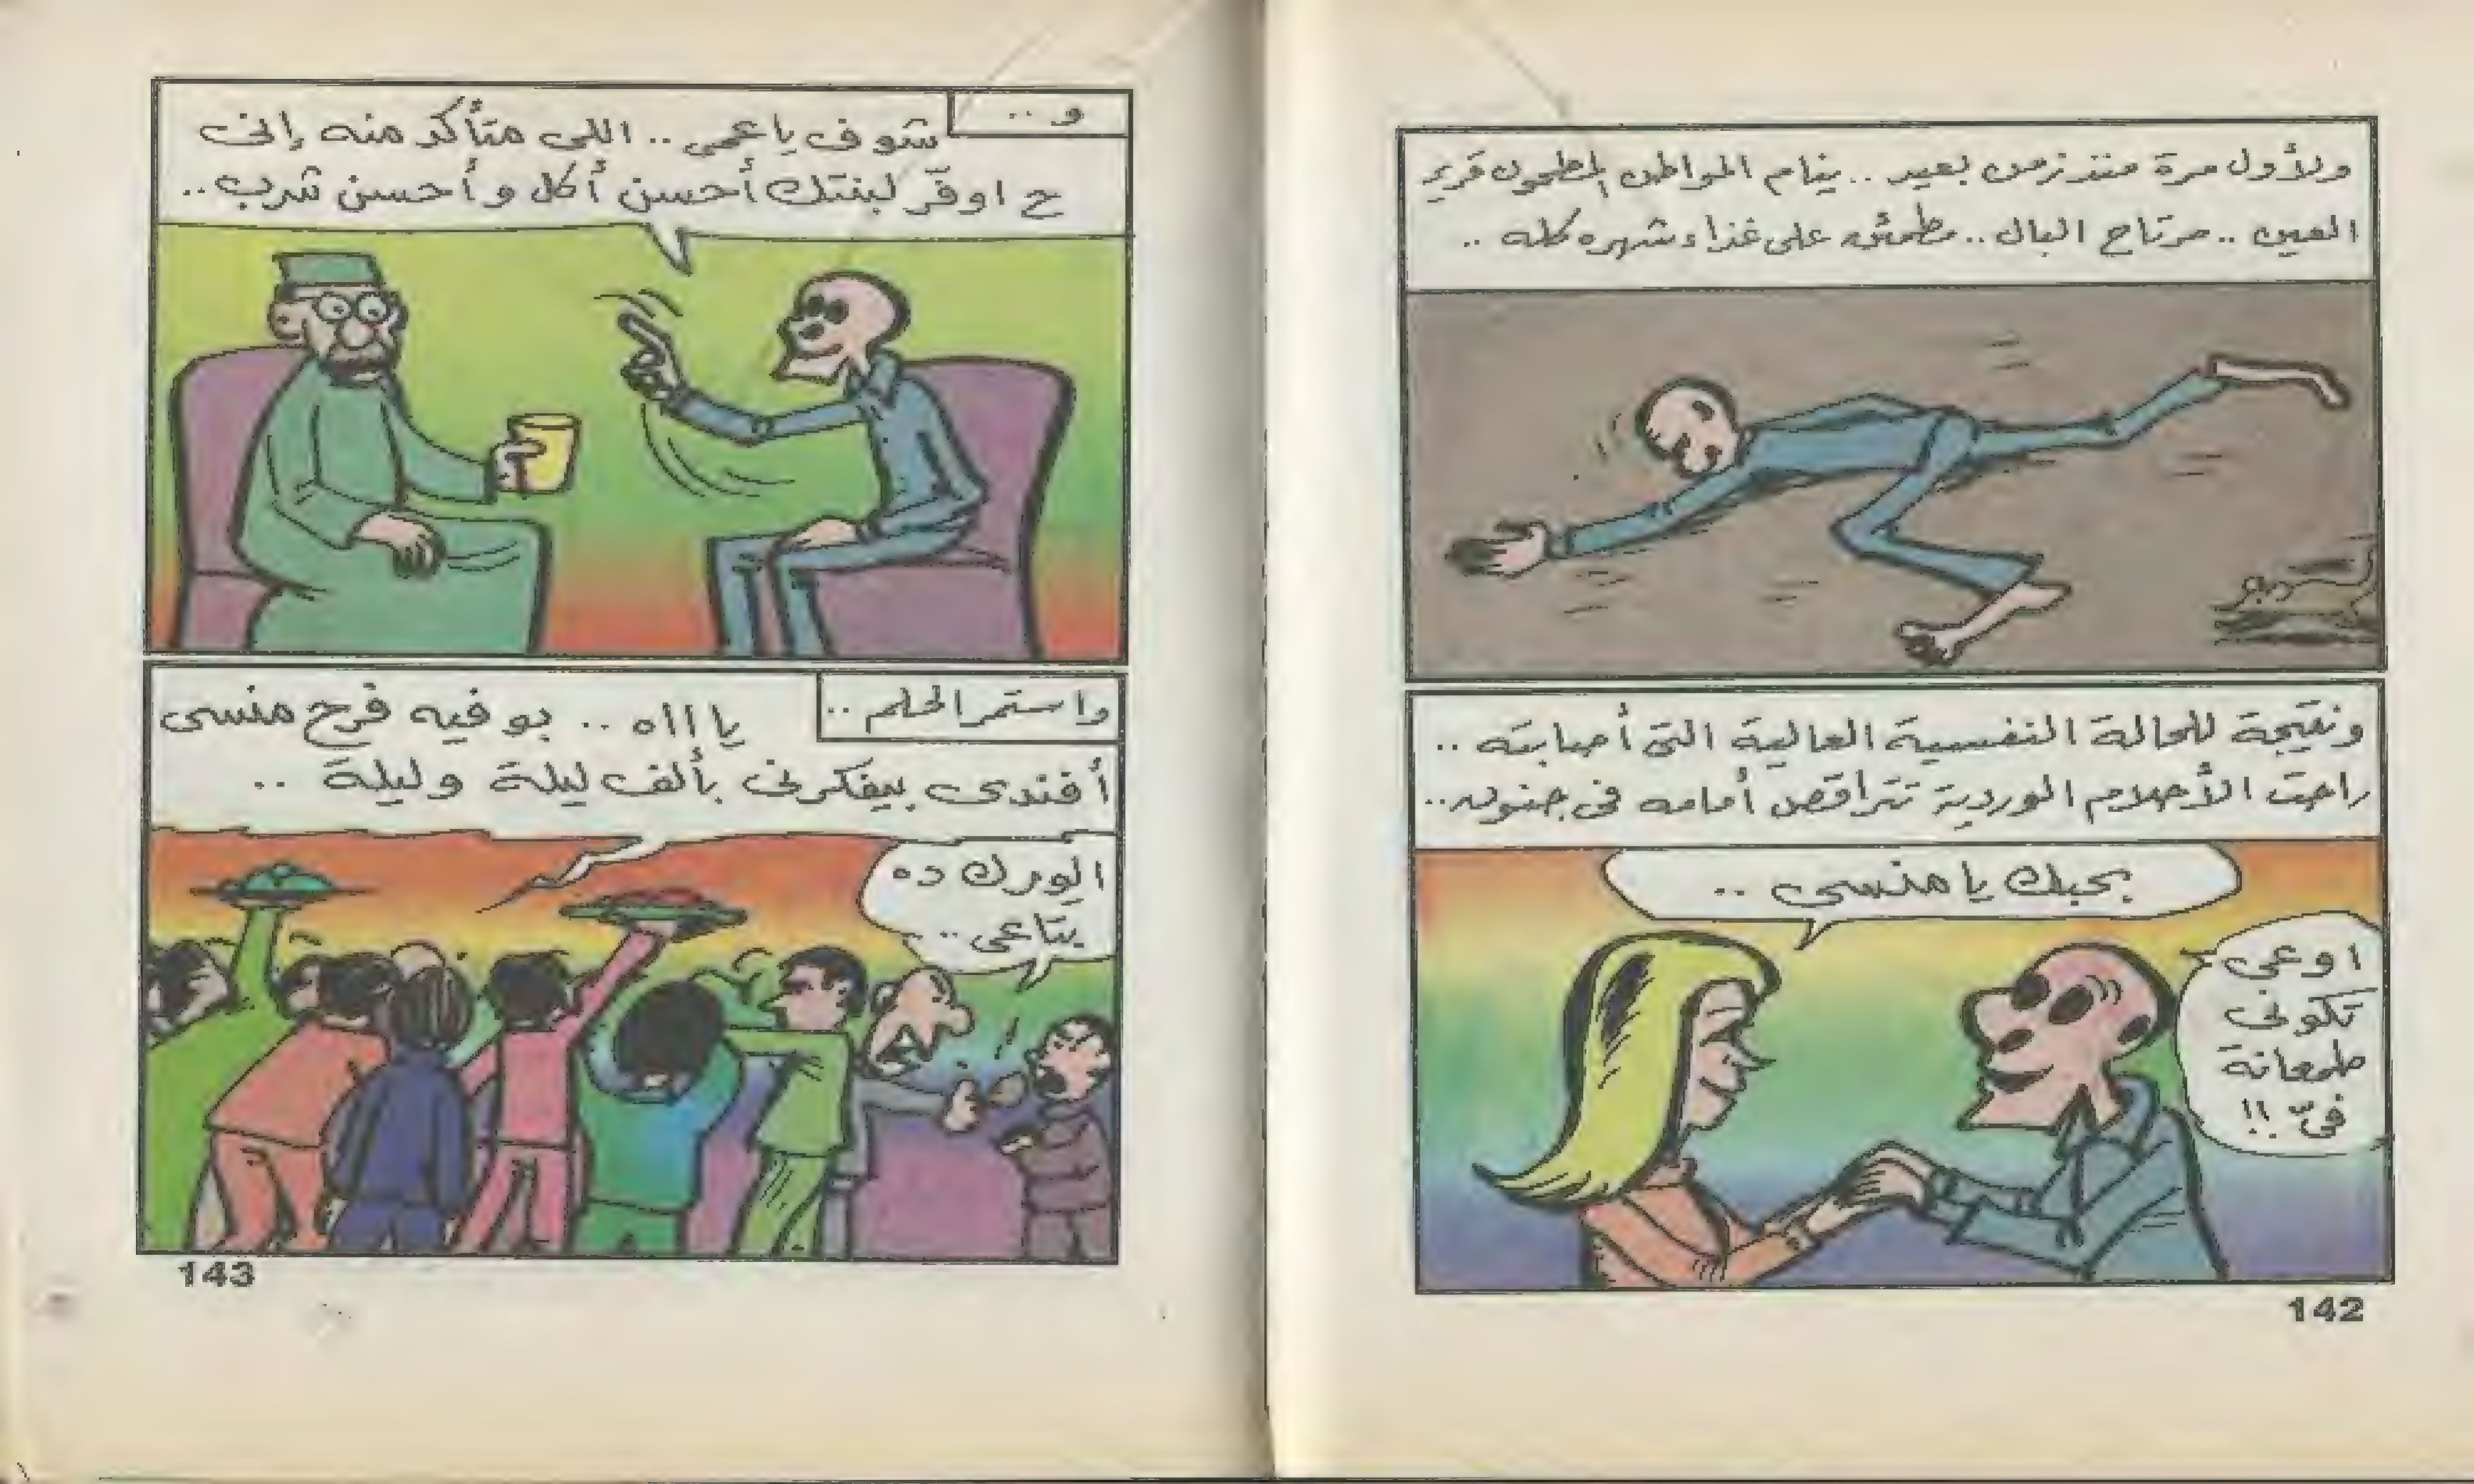 ولأول مرة منذ زمن بعيد .. ينام المواطن المطحون قرير
العين .. مرتاح البال .. مطمئن على غذاء شهره كله ..
ونتيجة للحالة النفسية العالية التى أصابته ..
راحت الأحلام الوردية تتراقص أمامه فى جنون ..
بحبك يا منسى ..
اوعى
تكونى
طمعانة
فىّ !!
142
و ..
شوف يا عمى .. اللى متأكد منه إنى
ح اوفّر لبنتك أحسن أكل و أحسن شرب ..
واستمر الحلم ..
يا اااه .. بوفيه فرح منسى
أفندى بيفكرنى بألف ليلة وليلة ..
الورك ده
بتاعى ..
143